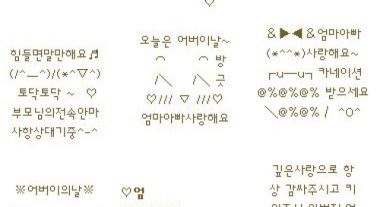 ♡
힘들면말만해요♬
(/^―^)/(*^▽^)
토닥토닥 ~ ♡
부모님의전속안마
사항상대기중^-^
오늘은 어버이날~
⌒ ⌒ 방
/＼ /＼ 긋
♡/// ▽ ///♡
엄마아빠사랑해요
& ▶◀ & 엄마아빠
(*^^*)사랑해요~
┏─u──u─┓ 카네이션
@%@%@ 받으세요
＼@%@% / ^O^
※어버이의날※
♡엄
깊은사랑으로 항
상 감싸주시고 키